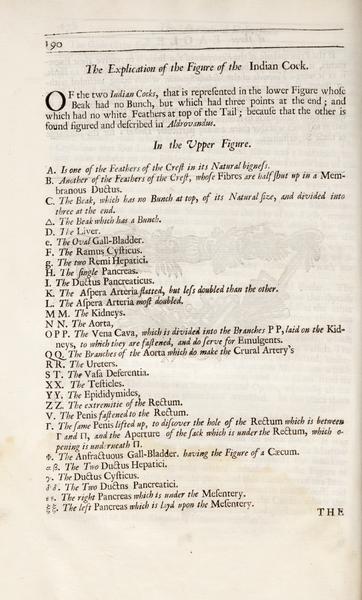 190
The Explication of the Figure of the Indian Cock.
OF the two Indian Cocks, that is represented in the lower Figure whose
Beak had no Bunch, but which had three points at the end; and
which had no white Feathers at top of the Tail; because that the other is
found figured and described in Aldrovandus.
In the Upper Figure.
A. Is one of the Feathers of the Crest in its Natural bigness.
B. Another of the Feathers of the Crest, whose Fibres are half shut up in a Mem-
branous Ductus.
C. The Beak, which has no Bunch at top, of its Natural size, and divided into
three at the end.
Δ. The Beak which has a Bunch.
D. The Liver.
e. The Oval Gall-Bladder.
F. The Ramus Cysticus.
g. The two Remi Hepatici.
H. The single Pancreas.
I. The Ductus Pancreaticus.
K. The Aspera Arteria flatted, but less doubled than the other.
L. The Aspera Arteria most doubled.
M M. The Kidneys.
N N. The Aorta,
O P P. The Vena Cava, which is divided into the Branches P P, laid on the Kid-
neys, to which they are fastened, and do serve for Emulgents.
QQ. The Branches of the Aorta which do make the Crural Artery's
RR. The Ureters.
S T. The Vasa Deferentia.
XX. The Testicles.
YY. The Epididymides,
ZZ. The extremitie of the Rectum.
V. The Penis fastened to the Rectum.
Γ. The same Penis lifted up, to discover the hole of the Rectum which is between
Γ and Π, and the Aperture of the sack which is under the Rectum, which o-
pening is underneath Π.
Φ. The Anfractuous Gall-Bladder. having the Figure of a Cæcum.
α β. The Two Ductus Hepatici.
γ. The Ductus Cysticus.
δ δ. The Two Ductns Pancreatici.
εε. The right Pancreas which is under the Mesentery.
ξξ. The left Pancreas which is layd upon the Mesentery.
THE